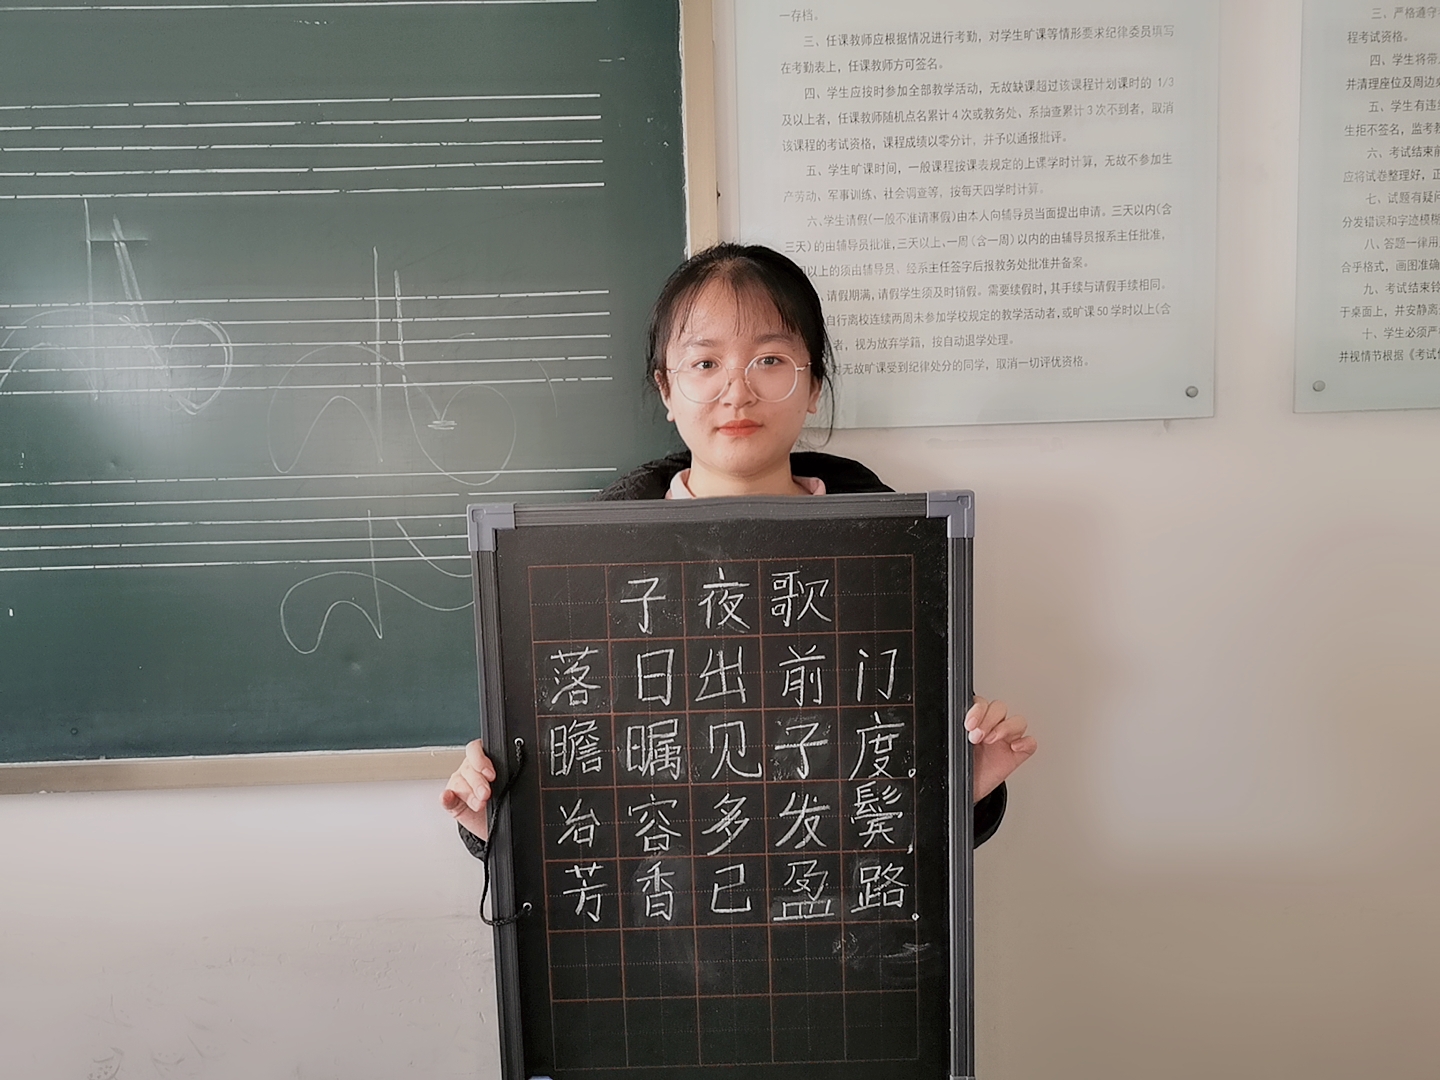 一存档。
三、任课教师应根据情况进行考勤，对学生旷课等情形要求纪律委员填写
在考勤表上，任课教师方可签名。
四、学生应按时参加全部教学活动，无故缺课超过该课程计划课时的 1/3
及以上者，任课教师随机点名累计4次或教务处、系抽查累计3次不到者，取消
该课程的考试资格，课程成绩以零分计，并予以通报批评。
五、学生旷课时间，一般课程按课表规定的上课学时计算，无故不参加生
产劳动、军事训练、社会调查等，按每天四学时计算。
六、学生请假(一般不准请事假)由本人向辅导员当面提出申请。三天以内(含
三天)的由辅导员批准,三天以上、一周(含一周)以内的由辅导员报系主任批准，
以上的须由辅导员、经系主任签字后报教务处批准并备案。
请假期满,请假学生须及时销假。需要续假时,其手续与请假手续相同。
自行离校连续两周未参加学校规定的教学活动者,或旷课50学时以上(含
者，视为放弃学籍，按自动退学处理。
对无故旷课受到纪律处分的同学，取消一切评优资格。
三、严格遵守
程考试资格。
四、学生将带
并清理座位及周边
五、学生有违
生拒不签名，监考
六、考试结束前
应将试卷整理好，正
七、试题有疑问
分发错误和字迹模糊
八、答题一律用
合乎格式，画图准确
九、考试结束铃
于桌面上，并安静离
十、学生必须严
并视情节根据《考试
子夜歌
落日出前门
瞻瞩见子度。
冶容多发鬓，
芳香已盈路。